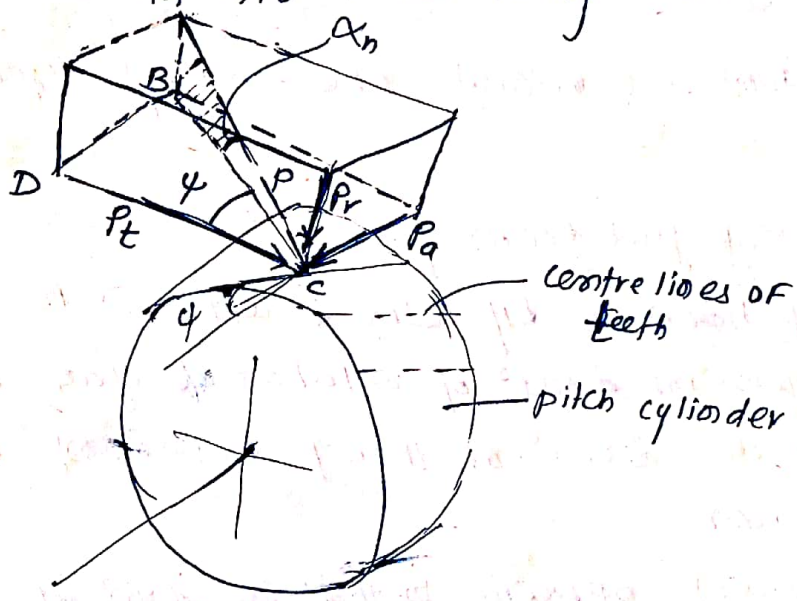 αn
B
D
ψ
P
Pr
Pt
Pa
C
ψ
centre lines of
teeth
pitch cylinder